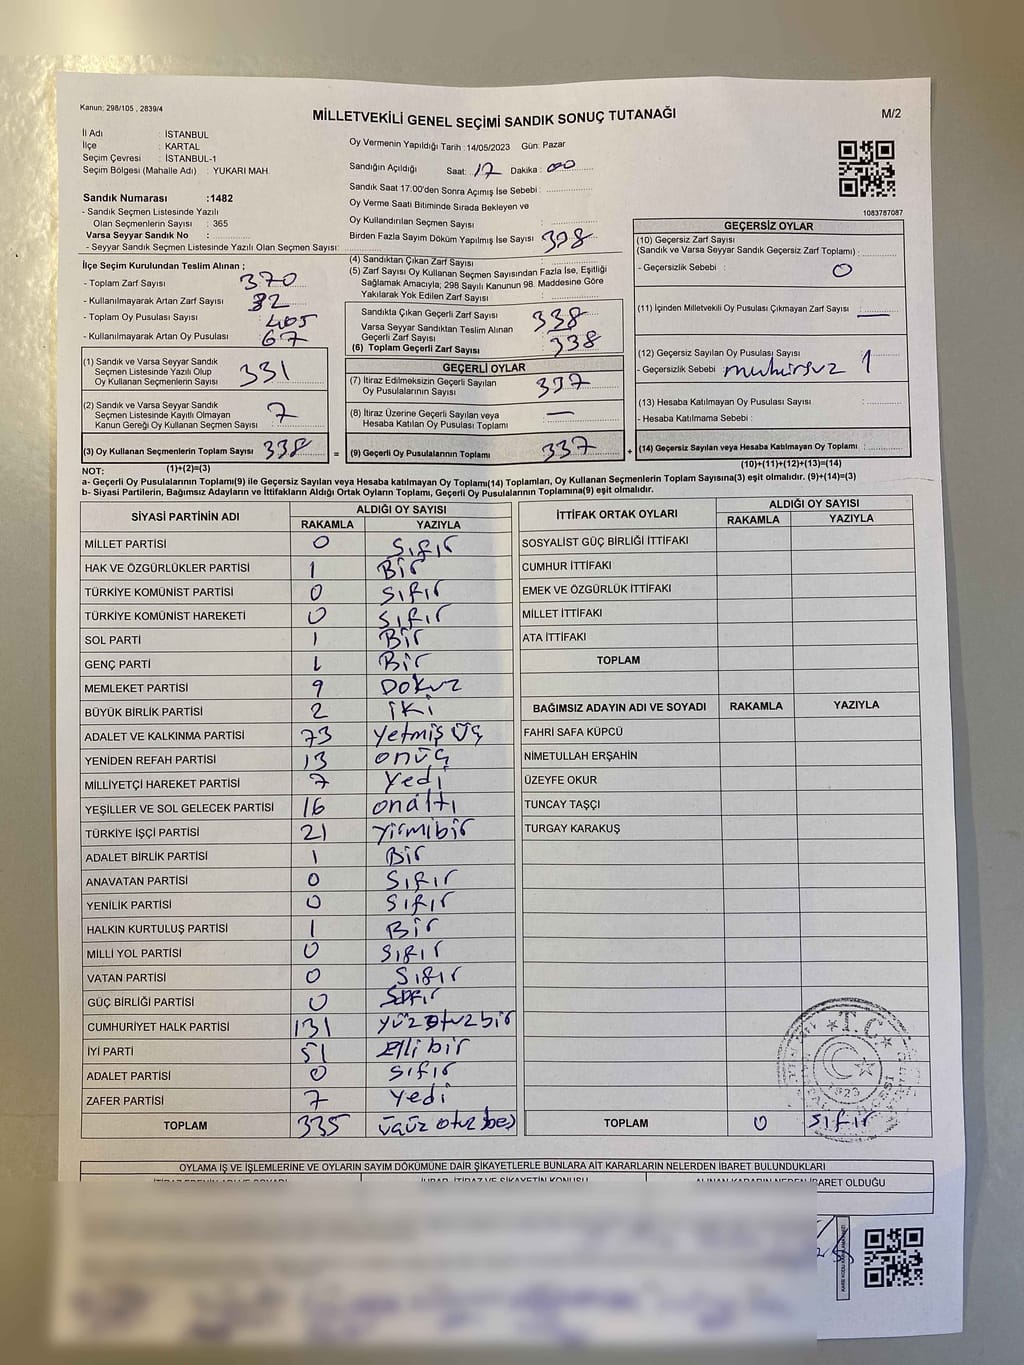 Kanun; 298/105 , 2839/4
MİLLETVEKİLİ GENEL SEÇİMİ SANDIK SONUÇ TUTANAĞI
M/2
İl Adı : İSTANBUL
İlçe : KARTAL
Seçim Çevresi : İSTANBUL-1
Seçim Bölgesi (Mahalle Adı) : YUKARI MAH.
Oy Vermenin Yapıldığı Tarih :14/05/2023 Gün: Pazar
Sandığın Açıldığı Saat: 17 Dakika: 00
Sandık Saat 17:00'den Sonra Açımış İse Sebebi :
Oy Verme Saati Bitiminde Sırada Bekleyen ve
Oy Kullandırılan Seçmen Sayısı :
Birden Fazla Sayım Döküm Yapılmış İse Sayısı :
Sandık Numarası :1482
- Sandık Seçmen Listesinde Yazılı
Olan Seçmenlerin Sayısı : 365
Varsa Seyyar Sandık No :
- Seyyar Sandık Seçmen Listesinde Yazılı Olan Seçmen Sayısı:
1083787087
İlçe Seçim Kurulundan Teslim Alınan ;
- Toplam Zarf Sayısı : 370
- Kullanılmayarak Artan Zarf Sayısı : 32
- Toplam Oy Pusulası Sayısı : 405
- Kullanılmayarak Artan Oy Pusulası : 67
(1) Sandık ve Varsa Seyyar Sandık
Seçmen Listesinde Yazılı Olup
Oy Kullanan Seçmenlerin Sayısı : 331
(2) Sandık ve Varsa Seyyar Sandık
Seçmen Listesinde Kayıtlı Olmayan
Kanun Gereği Oy Kullanan Seçmen Sayısı : 7
(3) Oy Kullanan Seçmenlerin Toplam Sayısı : 338
(1)+(2)=(3)
(4) Sandıktan Çıkan Zarf Sayısı : 338
(5) Zarf Sayısı Oy Kullanan Seçmen Sayısından Fazla İse, Eşitliği
Sağlamak Amacıyla; 298 Sayılı Kanunun 98. Maddesine Göre
Yakılarak Yok Edilen Zarf Sayısı :
Sandıkta Çıkan Geçerli Zarf Sayısı : 338
Varsa Seyyar Sandıktan Teslim Alınan
Geçerli Zarf Sayısı :
(6) Toplam Geçerli Zarf Sayısı : 338
GEÇERLİ OYLAR
(7) İtiraz Edilmeksizin Geçerli Sayılan
Oy Pusulalarının Sayısı : 337
(8) İtiraz Üzerine Geçerli Sayılan veya
Hesaba Katılan Oy Pusulası Toplamı : —
= (9) Geçerli Oy Pusulalarının Toplamı : 337
GEÇERSİZ OYLAR
(10) Geçersiz Zarf Sayısı
(Sandık ve Varsa Seyyar Sandık Geçersiz Zarf Toplamı) :
- Geçersizlik Sebebi : 0
(11) İçinden Milletvekili Oy Pusulası Çıkmayan Zarf Sayısı : —
(12) Geçersiz Sayılan Oy Pusulası Sayısı : 1
- Geçersizlik Sebebi mühürsüz
(13) Hesaba Katılmayan Oy Pusulası Sayısı :
- Hesaba Katılmama Sebebi :
+ (14) Geçersiz Sayılan veya Hesaba Katılmayan Oy Toplamı :
(10)+(11)+(12)+(13)=(14)
NOT:
a- Geçerli Oy Pusulalarının Toplamı(9) ile Geçersiz Sayılan veya Hesaba katılmayan Oy Toplamı(14) Toplamları, Oy Kullanan Seçmenlerin Toplam Sayısına(3) eşit olmalıdır. (9)+(14)=(3)
b- Siyasi Partilerin, Bağımsız Adayların ve İttifakların Aldığı Ortak Oyların Toplamı, Geçerli Oy Pusulalarının Toplamına(9) eşit olmalıdır.
SİYASİ PARTİNİN ADI ALDIĞI OY SAYISI
RAKAMLA YAZIYLA
MİLLET PARTİSİ 0 Sıfır
HAK VE ÖZGÜRLÜKLER PARTİSİ 1 Bir
TÜRKİYE KOMÜNİST PARTİSİ 0 Sıfır
TÜRKİYE KOMÜNİST HAREKETİ 0 Sıfır
SOL PARTİ 1 Bir
GENÇ PARTİ 1 Bir
MEMLEKET PARTİSİ 9 Dokuz
BÜYÜK BİRLİK PARTİSİ 2 iki
ADALET VE KALKINMA PARTİSİ 73 Yetmiş üç
YENİDEN REFAH PARTİSİ 13 onüç
MİLLİYETÇİ HAREKET PARTİSİ 7 Yedi
YEŞİLLER VE SOL GELECEK PARTİSİ 16 onaltı
TÜRKİYE İŞÇİ PARTİSİ 21 yirmibir
ADALET BİRLİK PARTİSİ 1 Bir
ANAVATAN PARTİSİ 0 Sıfır
YENİLİK PARTİSİ 0 Sıfır
HALKIN KURTULUŞ PARTİSİ 1 Bir
MİLLİ YOL PARTİSİ 0 Sıfır
VATAN PARTİSİ 0 Sıfır
GÜÇ BİRLİĞİ PARTİSİ 0 Sıfır
CUMHURİYET HALK PARTİSİ 131 yüzotuzbir
İYİ PARTİ 51 Ellibir
ADALET PARTİSİ 0 sıfır
ZAFER PARTİSİ 7 Yedi
TOPLAM 335 üçüz otuz beş
İTTİFAK ORTAK OYLARI ALDIĞI OY SAYISI
RAKAMLA YAZIYLA
SOSYALİST GÜÇ BİRLİĞİ İTTİFAKI
CUMHUR İTTİFAKI
EMEK VE ÖZGÜRLÜK İTTİFAKI
MİLLET İTTİFAKI
ATA İTTİFAKI
TOPLAM
BAĞIMSIZ ADAYIN ADI VE SOYADI RAKAMLA YAZIYLA
FAHRİ SAFA KÜPCÜ
NİMETULLAH ERŞAHİN
ÜZEYFE OKUR
TUNCAY TAŞÇI
TURGAY KARAKUŞ
T.C.
1923
TOPLAM 0 sıfır
OYLAMA İŞ VE İŞLEMLERİNE VE OYLARIN SAYIM DÖKÜMÜNE DAİR ŞİKAYETLERLE BUNLARA AİT KARARLARIN NELERDEN İBARET BULUNDUKLARI